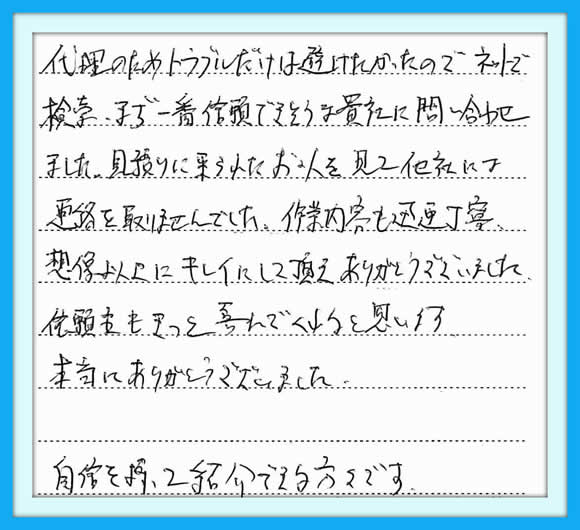 代理のためトラブルだけは避けたかったので ネットで
検索、まず一番信頼できそうな貴社に問い合わせ
ました。見積りに来られたお人を見て他社には
連絡を取りませんでした。作業内容も迅速丁寧、
想像以上にキレイにして頂きありがとうございました。
依頼主もきっと喜んでくれると思います。
本当にありがとうございました。
自信を持って紹介できる方々です。